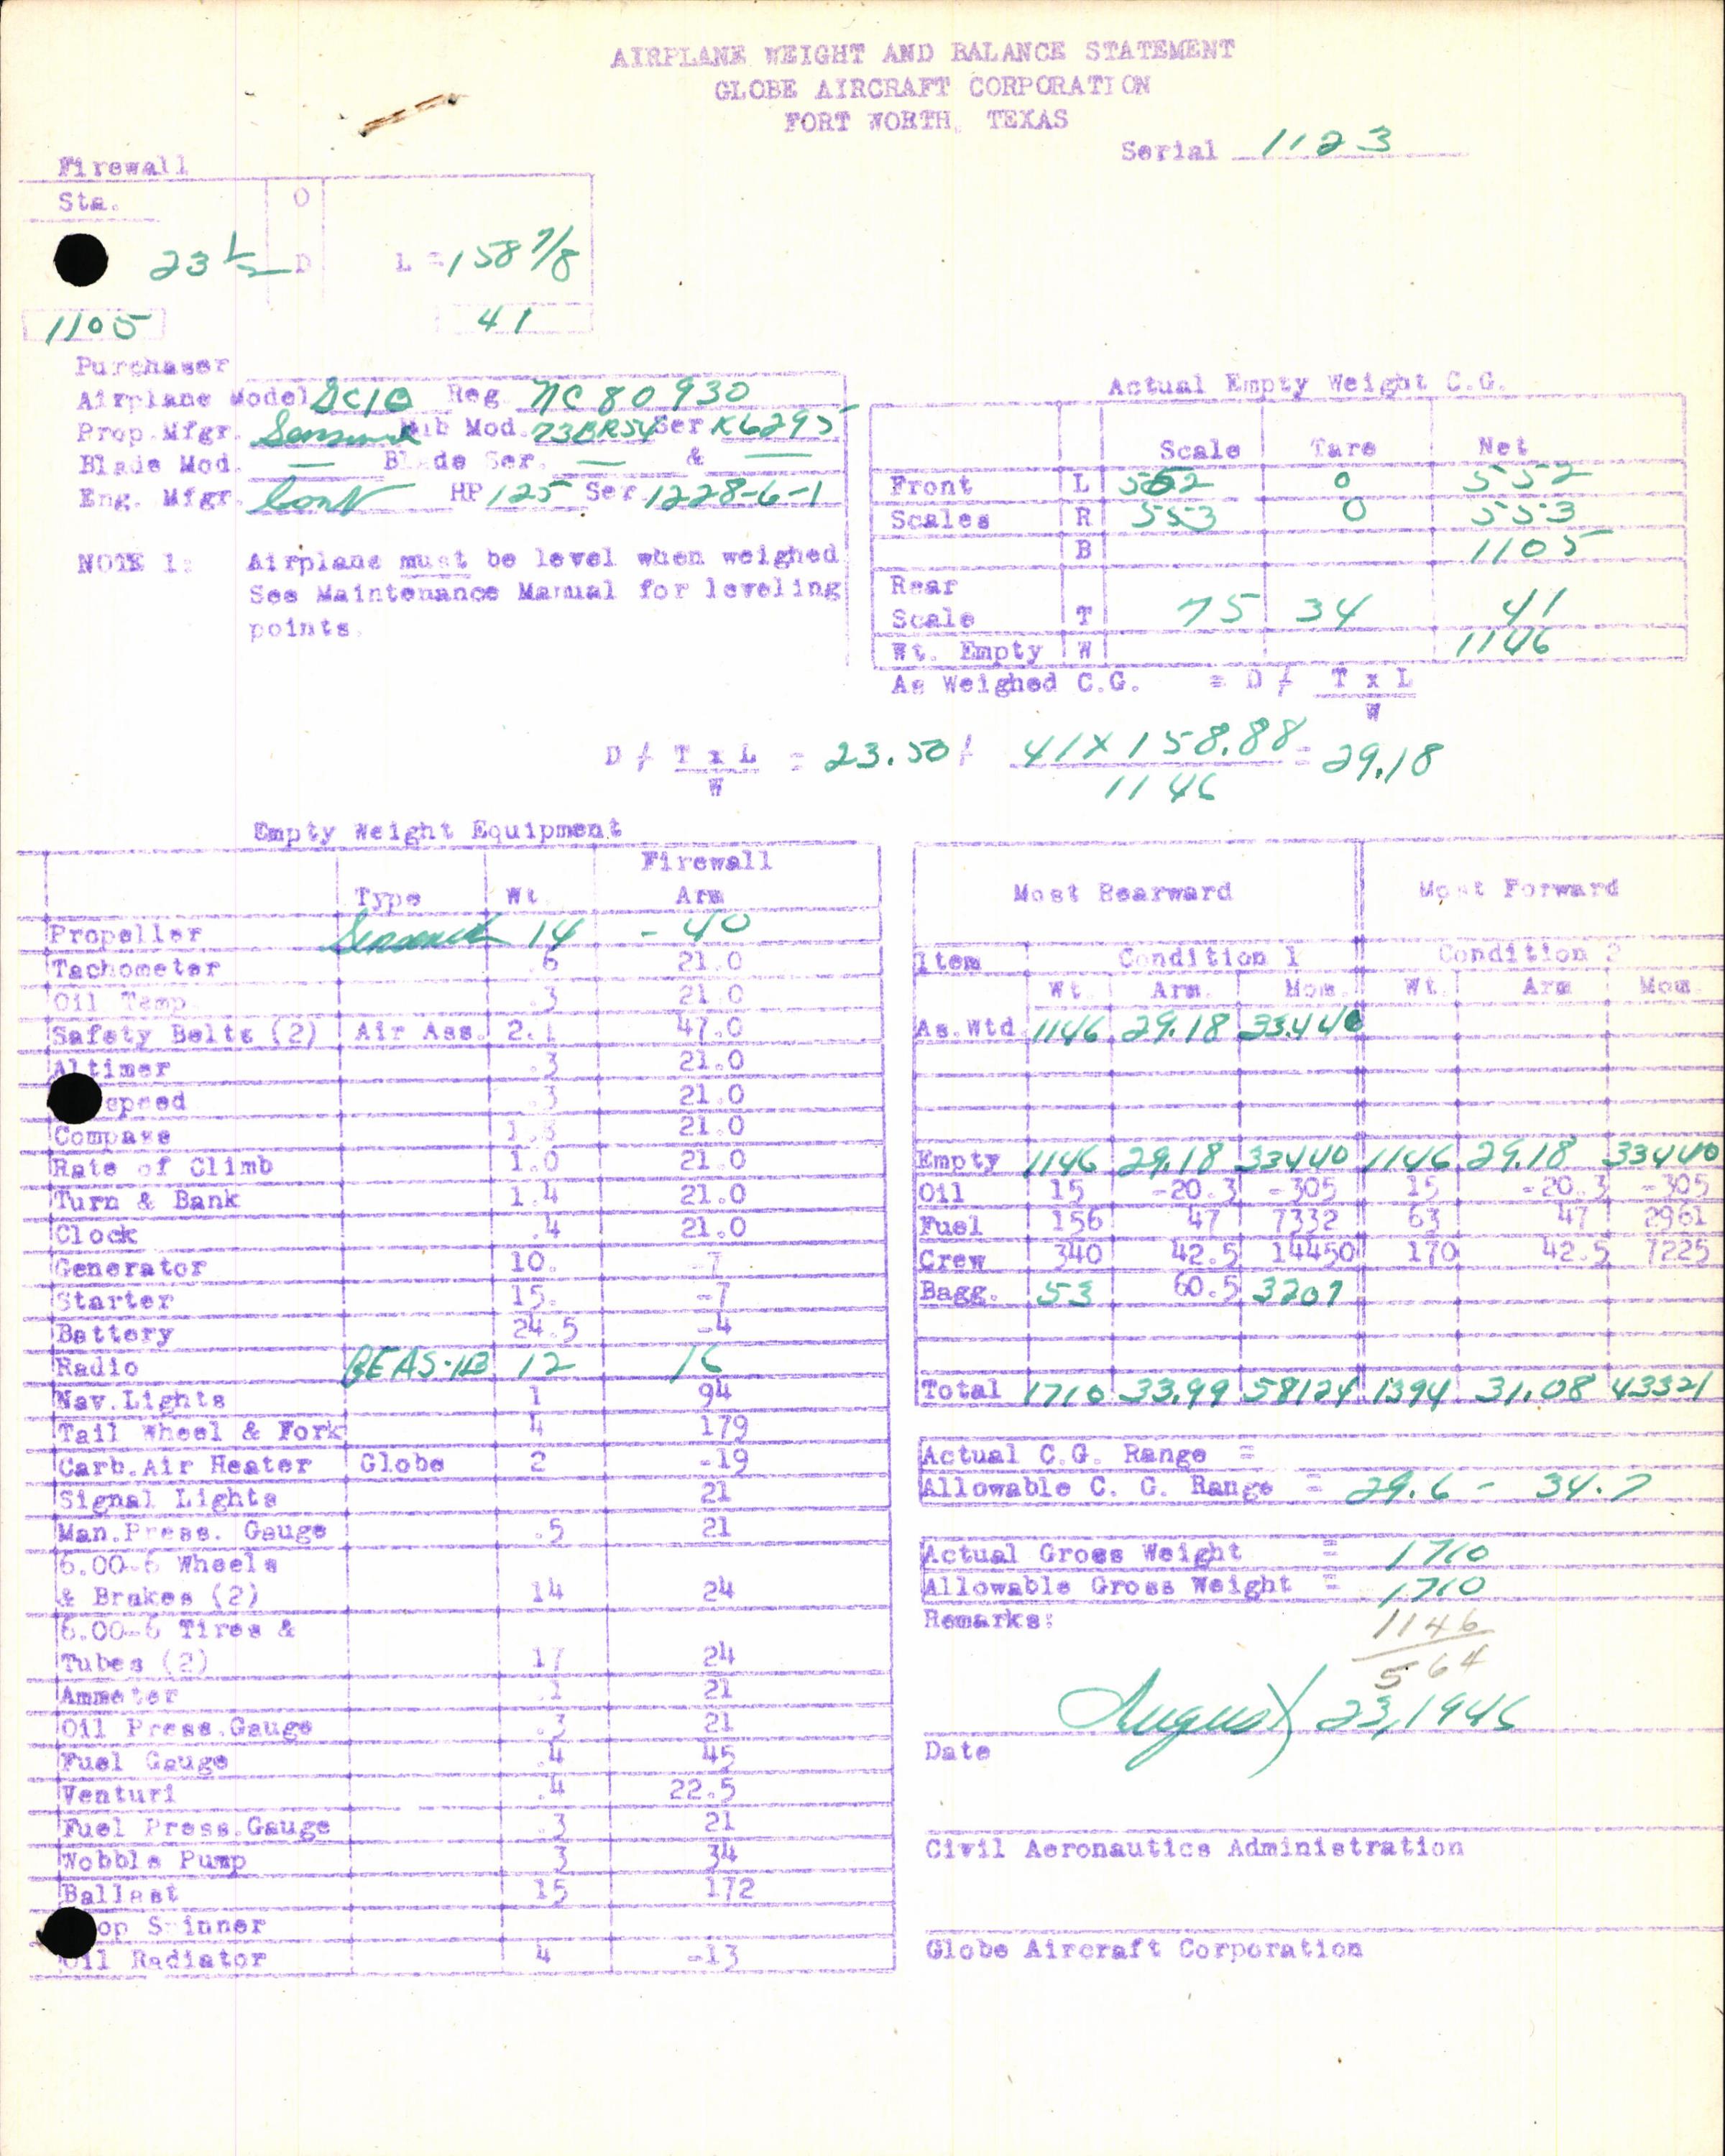 AIRPLANE WEIGHT AND BALANCE STATEMENT
GLOBE AIRCRAFT CORPORATION
FORT WORTH, TEXAS
Serial 1123
Firewall
Sta. 0
23 1/2 D L = 158 7/8
1105 41
Purchaser
Airplane Model GC1B Reg. NC80930
Prop.Mfgr. Sensenich Hub Mod. 73BR54 Ser K6295
Blade Mod. — Blade Ser. — & —
Eng. Mfgr. Cont HP 125 Ser 1228-6-1
NOTE 1: Airplane must be level when weighed
See Maintenance Manual for leveling
points.
Actual Empty Weight C.G.
Scale Tare Net
Front L 552 0 552
Scales R 553 0 553
B 1105
Rear
Scale T 75 34 41
Wt. Empty W 1146
As Weighed C.G. = D / T x L
W
D / T x L = 23.50 / 41 X 158.88 = 29.18
W 1146
Empty Weight Equipment
Firewall
Type Wt. Arm
Propeller Sensenich 14 -40
Tachometer .6 21.0
Oil Temp .3 21.0
Safety Belts (2) Air Ass. 2.1 47.0
Altimer .3 21.0
speed .3 21.0
Compass 21.0
Rate of Climb 1.0 21.0
Turn & Bank 1.4 21.0
Clock .4 21.0
Generator 10. -7
Starter 15. -7
Battery 24.5 -4
Radio 12 16
Nav.Lights 1 94
Tail Wheel & Fork 4 179
Carb.Air Heater Globe 2 -19
Signal Lights 21
Man.Press. Gauge .5 21
6.00-6 Wheels
& Brakes (2) 14 24
6.00-6 Tires &
Tubes (2) 17 24
Ammeter .1 21
Oil Press.Gauge .3 21
Fuel Gauge .4 45
Venturi .4 22.5
Fuel Press.Gauge .3 21
Wobble Pump 3 34
Ballast 15 172
op Spinner
Oil Radiator 4 -13
Most Rearward Most Forward
Item Condition 1 Condition 2
Wt. Arm. Mom. Wt. Arm Mom.
As.Wtd 1146 29.18 33440
Empty 1146 29.18 33440 1146 29.18 33440
Oil 15 -20.3 -305 15 -20.3 -305
Fuel 156 47 7332 63 47 2961
Crew 340 42.5 14450 170 42.5 7225
Bagg. 53 60.5 3207
Total 1710 33.99 58124 1394 31.08 43321
Actual C.G. Range =
Allowable C. G. Range = 29.6 - 34.7
Actual Gross Weight = 1710
Allowable Gross Weight = 1710
Remarks: 1146
564
August 23, 1946
Date
Civil Aeronautics Administration
Globe Aircraft Corporation